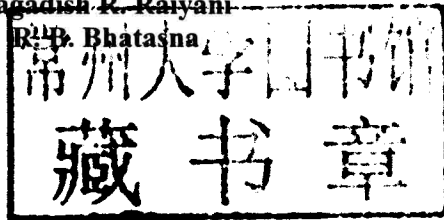 agadish R. Raiyani
R. B. Bhatasna
常州大学图书馆
藏书章